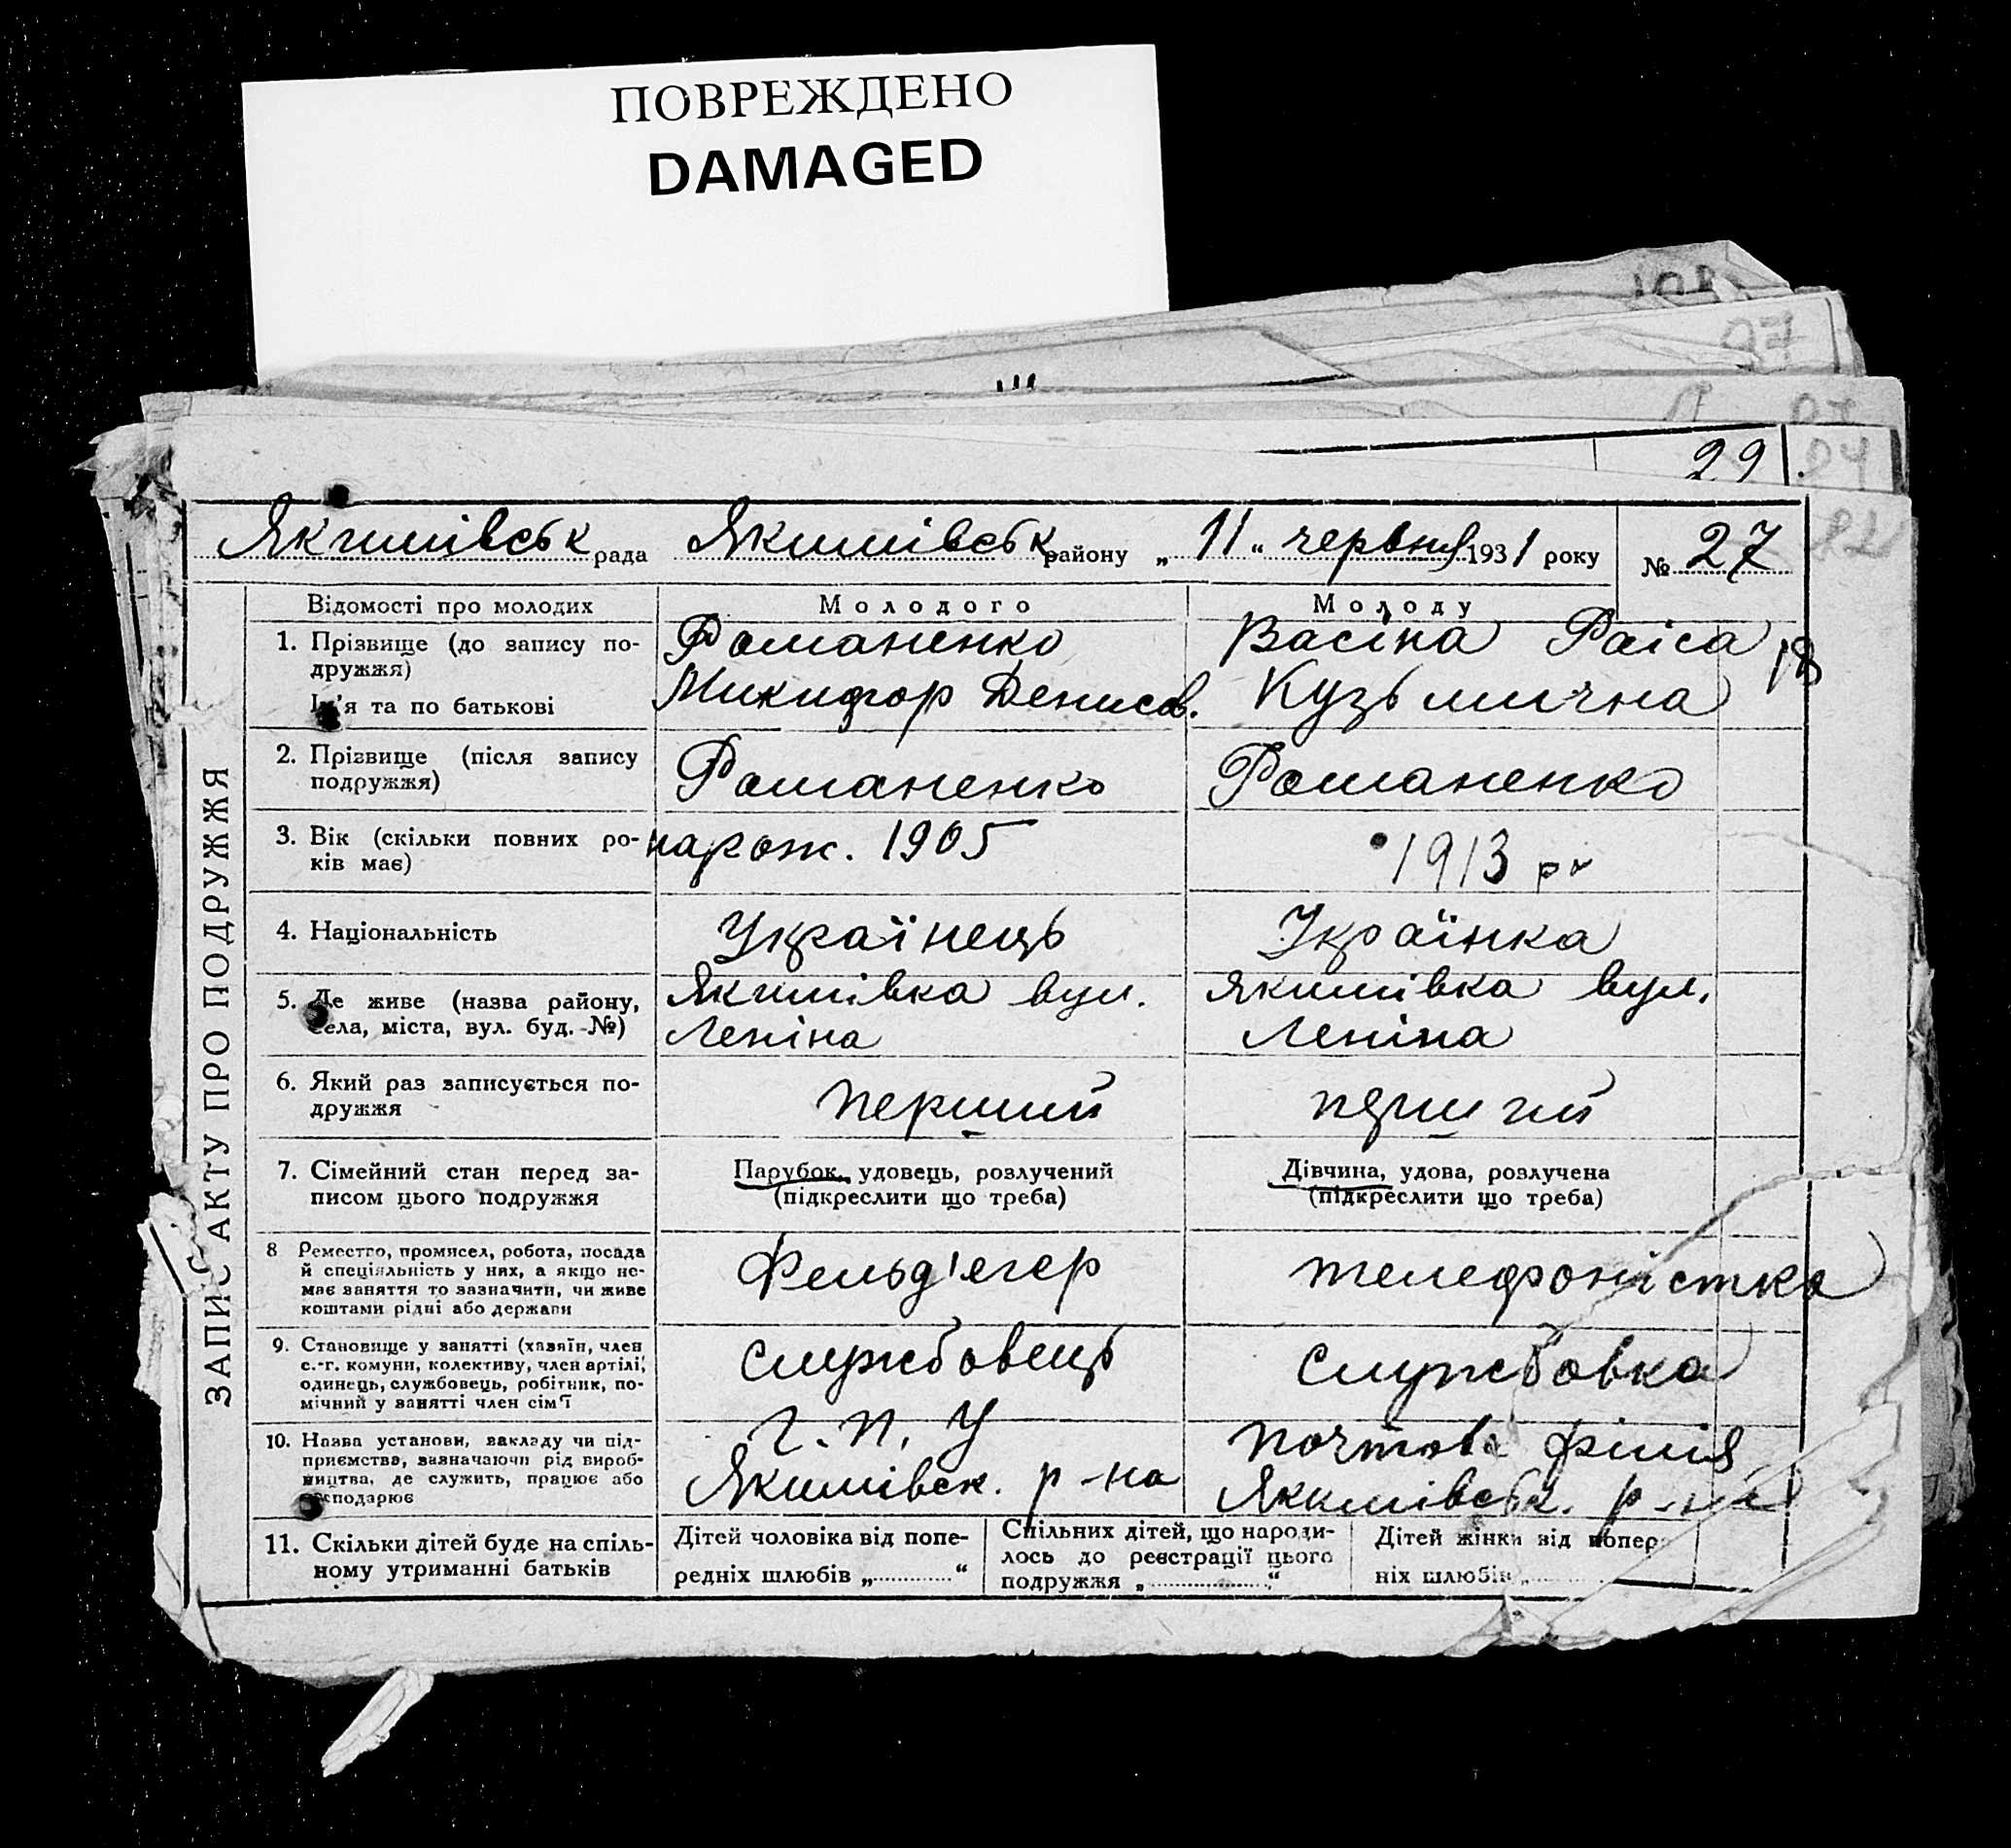 ПОВРЕЖДЕНО
DAMAGED
97
29
Якимівськ рада Якимівськ району „ 11 " червня 1931 року № 27
ЗАПИС АКТУ ПРО ПОДРУЖЖЯ
Відомості про молодих Молодого Молоду
1. Прізвище (до запису по- Романенко Васіна Раіса 18
дружжя)
Ім'я та по батькові Микифор Денисов. Кузьмична
2. Прізвище (після запису Романенко Романенко
подружжя)
3. Вік (скільки повних ро- нарож. 1905 1913 р
ків має)
4. Національність Українець Українка
5. Де живе (назва району, Якимівка вул. Якимівка вул.
села, міста, вул. буд. №) Леніна Леніна
6. Який раз записується по- перший перший
дружжя
7. Сімейний стан перед за- Парубок, удовець, розлучений Дівчина, удова, розлучена
писом цього подружжя (підкреслити що треба) (підкреслити що треба)
8 Ремество, промисел, робота, посада Фельд'єгер телефоністка
й спеціяльність у них, а якщо не-
має заняття то зазначити, чи живе
коштами рідні або держави
9. Становище у занятті (хазяїн, член службовець службовка
с.-г. комуни, колективу, член артілі,
одинець, службовець, робітник, по-
мічний у занятті член сім'ї
10. Назва установи, закладу чи під- Г. П. У почтова філія
приємства, зазначаючи рід вироб- Якимівск. р-на Якимівськ. р-на
ництва, де служить, працює або
господарює
11. Скільки дітей буде на спіль- Дітей чоловіка від попе- Спільних дітей, що народи- Дітей жінки від попер
ному утриманні батьків редніх шлюбів „ " лось до реєстрації цього ніх шлюбів „
подружжя „ "